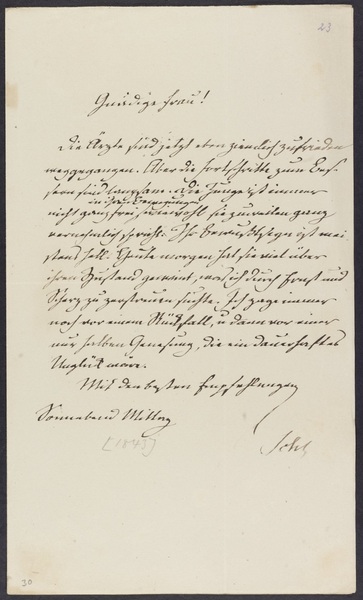 23
Gnädige Frau!
Die Ärzte sind jetzt eben ziemlich zufrieden
weggegangen. Aber die Fortschritte zum Bes-
sern sind langsam. Die Zunge ist immer
in ihrer Bewegung
nicht ganz frei, wiewohl sie zuweilen ganz
vernehmlich spricht. Ihr Bewußtsein ist mei-
stens hell. Heute morgen hat sie viel über
ihren Zustand geweint, was ich durch Ernst und
Scherz zu zerstreuen suchte. Ich zage immer
noch vor einem Rückfall, u dann vor einer
nur halben Genesung, die ein dauerhaftes
Unglück wäre.
Mit den besten Empfehlungen
Sonnabend Mittag
[1843]
Schl
30